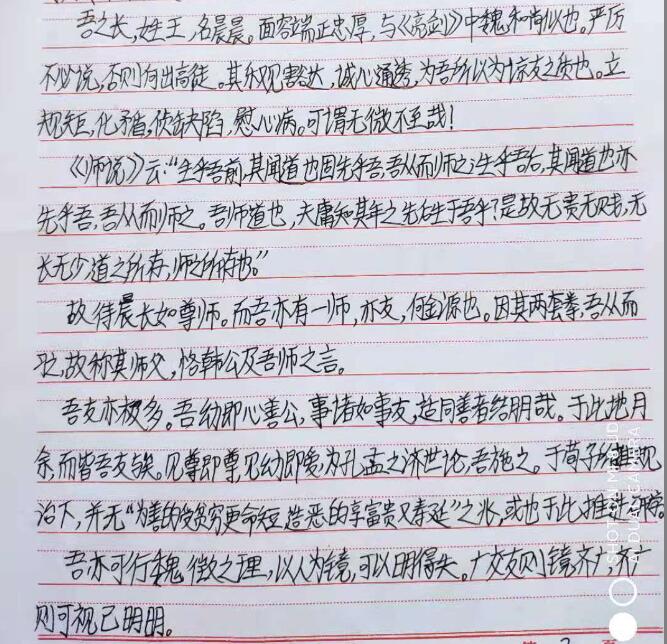 吾之长，姓王，名晨晨。面容端正忠厚，与《亮剑》中魏和尚似也。严厉
不必说，否则何出高徒。其乐观豁达，诚心通透，为吾所以为惊友之质也。立
规矩，化矛盾，侦缺陷，慰心病。可谓无微不至哉！
《师说》云："生乎吾前，其闻道也固先乎吾，吾从而师之；生乎吾后，其闻道也亦
先乎吾，吾从而师之。吾师道也，夫庸知其年之先后生于吾乎？是故无贵无贱，无
长无少，道之所存，师之所存也。"
故待晨长如尊师。而吾亦有一师，亦友，何金源也。因其两套拳，吾从而
学，故称其师父，恪韩公及吾师之言。
吾友亦极多。吾幼即心善公，事诸如事友，造同善者结朋哉。于此地月
余，而皆吾友矣。见尊即尊，见幼即爱，为孔孟之济世论，吾施之。于荀子
治下，并无"为善的受贫穷更命短，造恶的享富贵又寿延"之兆，或也于此推
吾亦可行魏徵之理，以人为镜，可以明得失。广交友则镜齐广，齐广
则可视己明明。
SHOT ON MEIZU
AI DUAL CAMERA